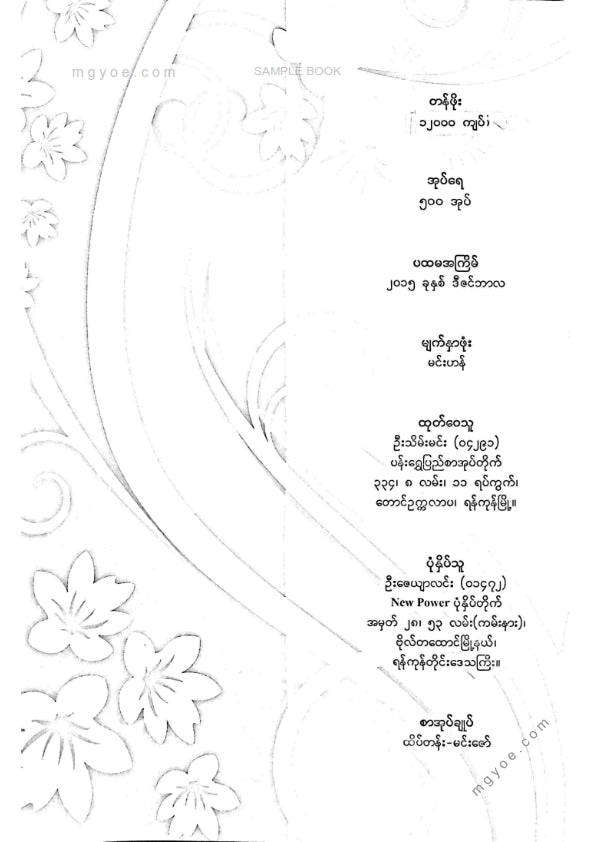 mgyoe.com
SAMPLE BOOK
တန်ဖိုး
၁၂၀၀၀ ကျပ်၊
အုပ်ရေ
၅၀၀ အုပ်
ပထမအကြိမ်
၂၀၁၅ ခုနှစ် ဒီဇင်ဘာလ
မျက်နှာဖုံး
မင်းဟန်
ထုတ်ဝေသူ
ဦးသိမ်းမင်း (၀၄၂၉၁)
ပန်းရွှေပြည်စာအုပ်တိုက်
၃၃၄၊ ၈ လမ်း၊ ၁၁ ရပ်ကွက်၊
တောင်ဥက္ကလာပ၊ ရန်ကုန်မြို့။
ပုံနှိပ်သူ
ဦးဇေယျာလင်း (၀၁၄၇၂)
New Power ပုံနှိပ်တိုက်
အမှတ် ၂၈၊ ၅၃ လမ်း(ကမ်းနား)၊
ဗိုလ်တထောင်မြို့နယ်၊
ရန်ကုန်တိုင်းဒေသကြီး။
စာအုပ်ချုပ်
ထိပ်တန်း-မင်းဇော်
mgyoe.com